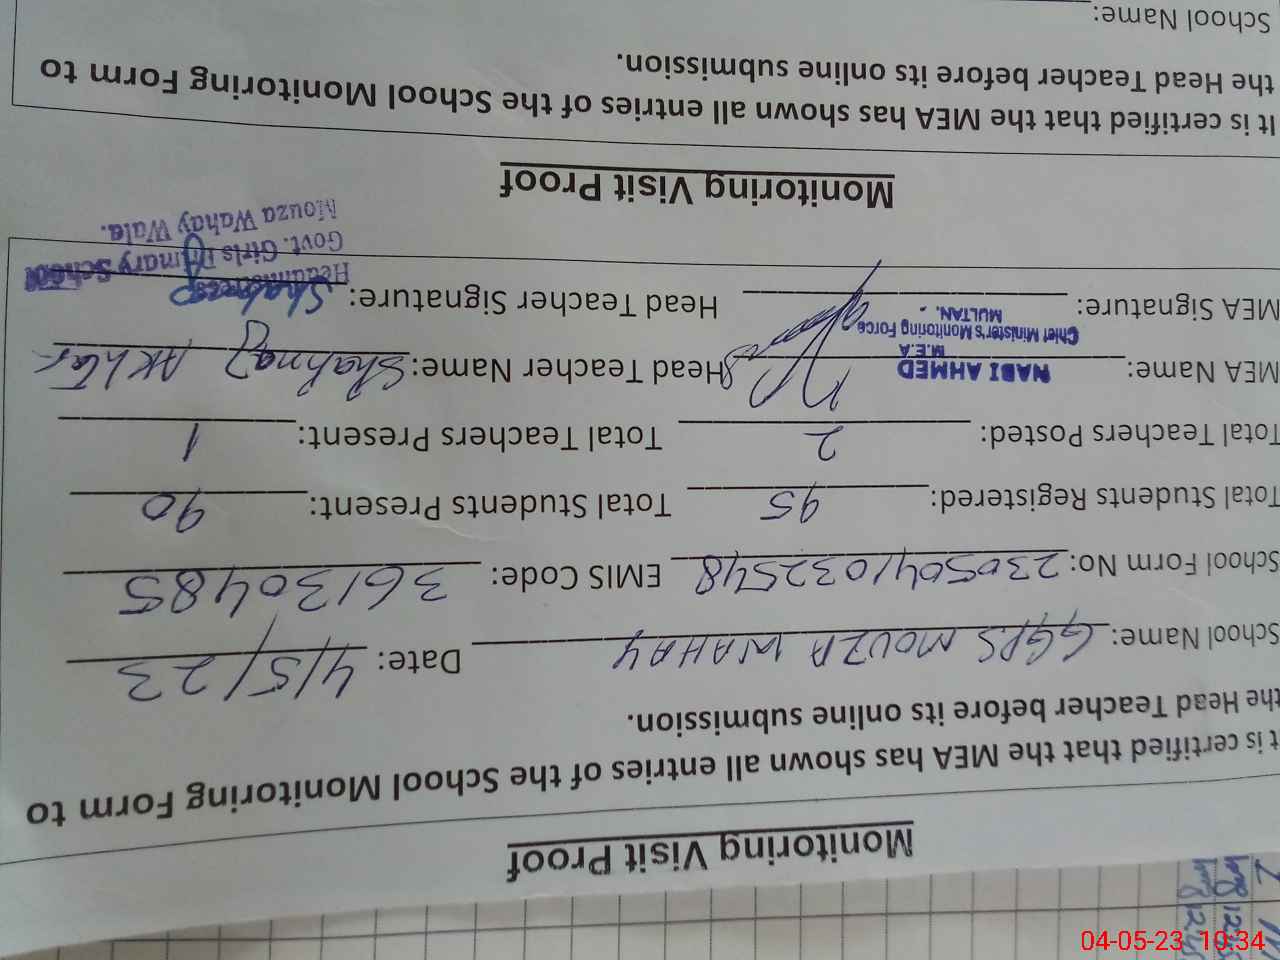 Monitoring Visit Proof
t is certified that the MEA has shown all entries of the School Monitoring Form to
the Head Teacher before its online submission.
School Name: GGPS MOUZA WAHAY Date: 4/5/23
School Form No: 230504103 2548 EMIS Code: 36130485
Total Students Registered: 95 Total Students Present: 90
Total Teachers Posted: 2 Total Teachers Present: 1
MEA Name: NABI AHMED Head Teacher Name: Shahnaz Akhtar
M.E.A
Chief Minister's Monitoring Force
MULTAN.
MEA Signature: Head Teacher Signature: Shahnaz
Headmistress
Govt. Girls Primary School
Mouza Wahay Wala.
Monitoring Visit Proof
It is certified that the MEA has shown all entries of the School Monitoring Form to
the Head Teacher before its online submission.
School Name:
04-05-23 10:34